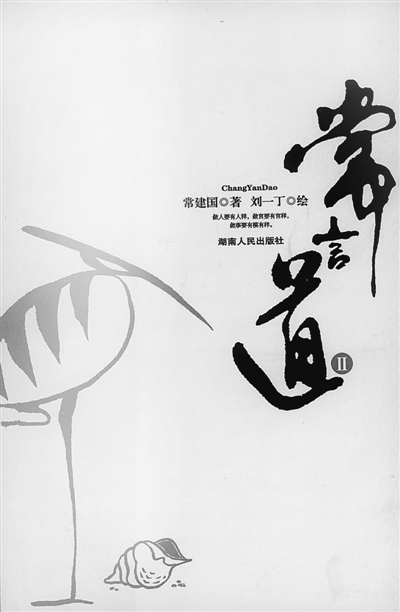 常言道
II
ChangYanDao
常建国◎著 刘一丁◎绘
做人要有人样,做官要有官样,
做事要有模有样。
湖南人民出版社